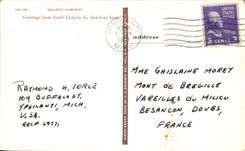 GOLDEN HARVEST
Greetings from South Dakota the Sunshine State
address
3 CENTS 3
MME GHISLAINE MOREY
MONT DE BREGILLE
VAREILLES DU MILIEU
BESANCON, DOUBS,
FRANCE
RAYMOND H.
109 BUFFALO ST.
YPSILANTI, MICH.
U.S.A.